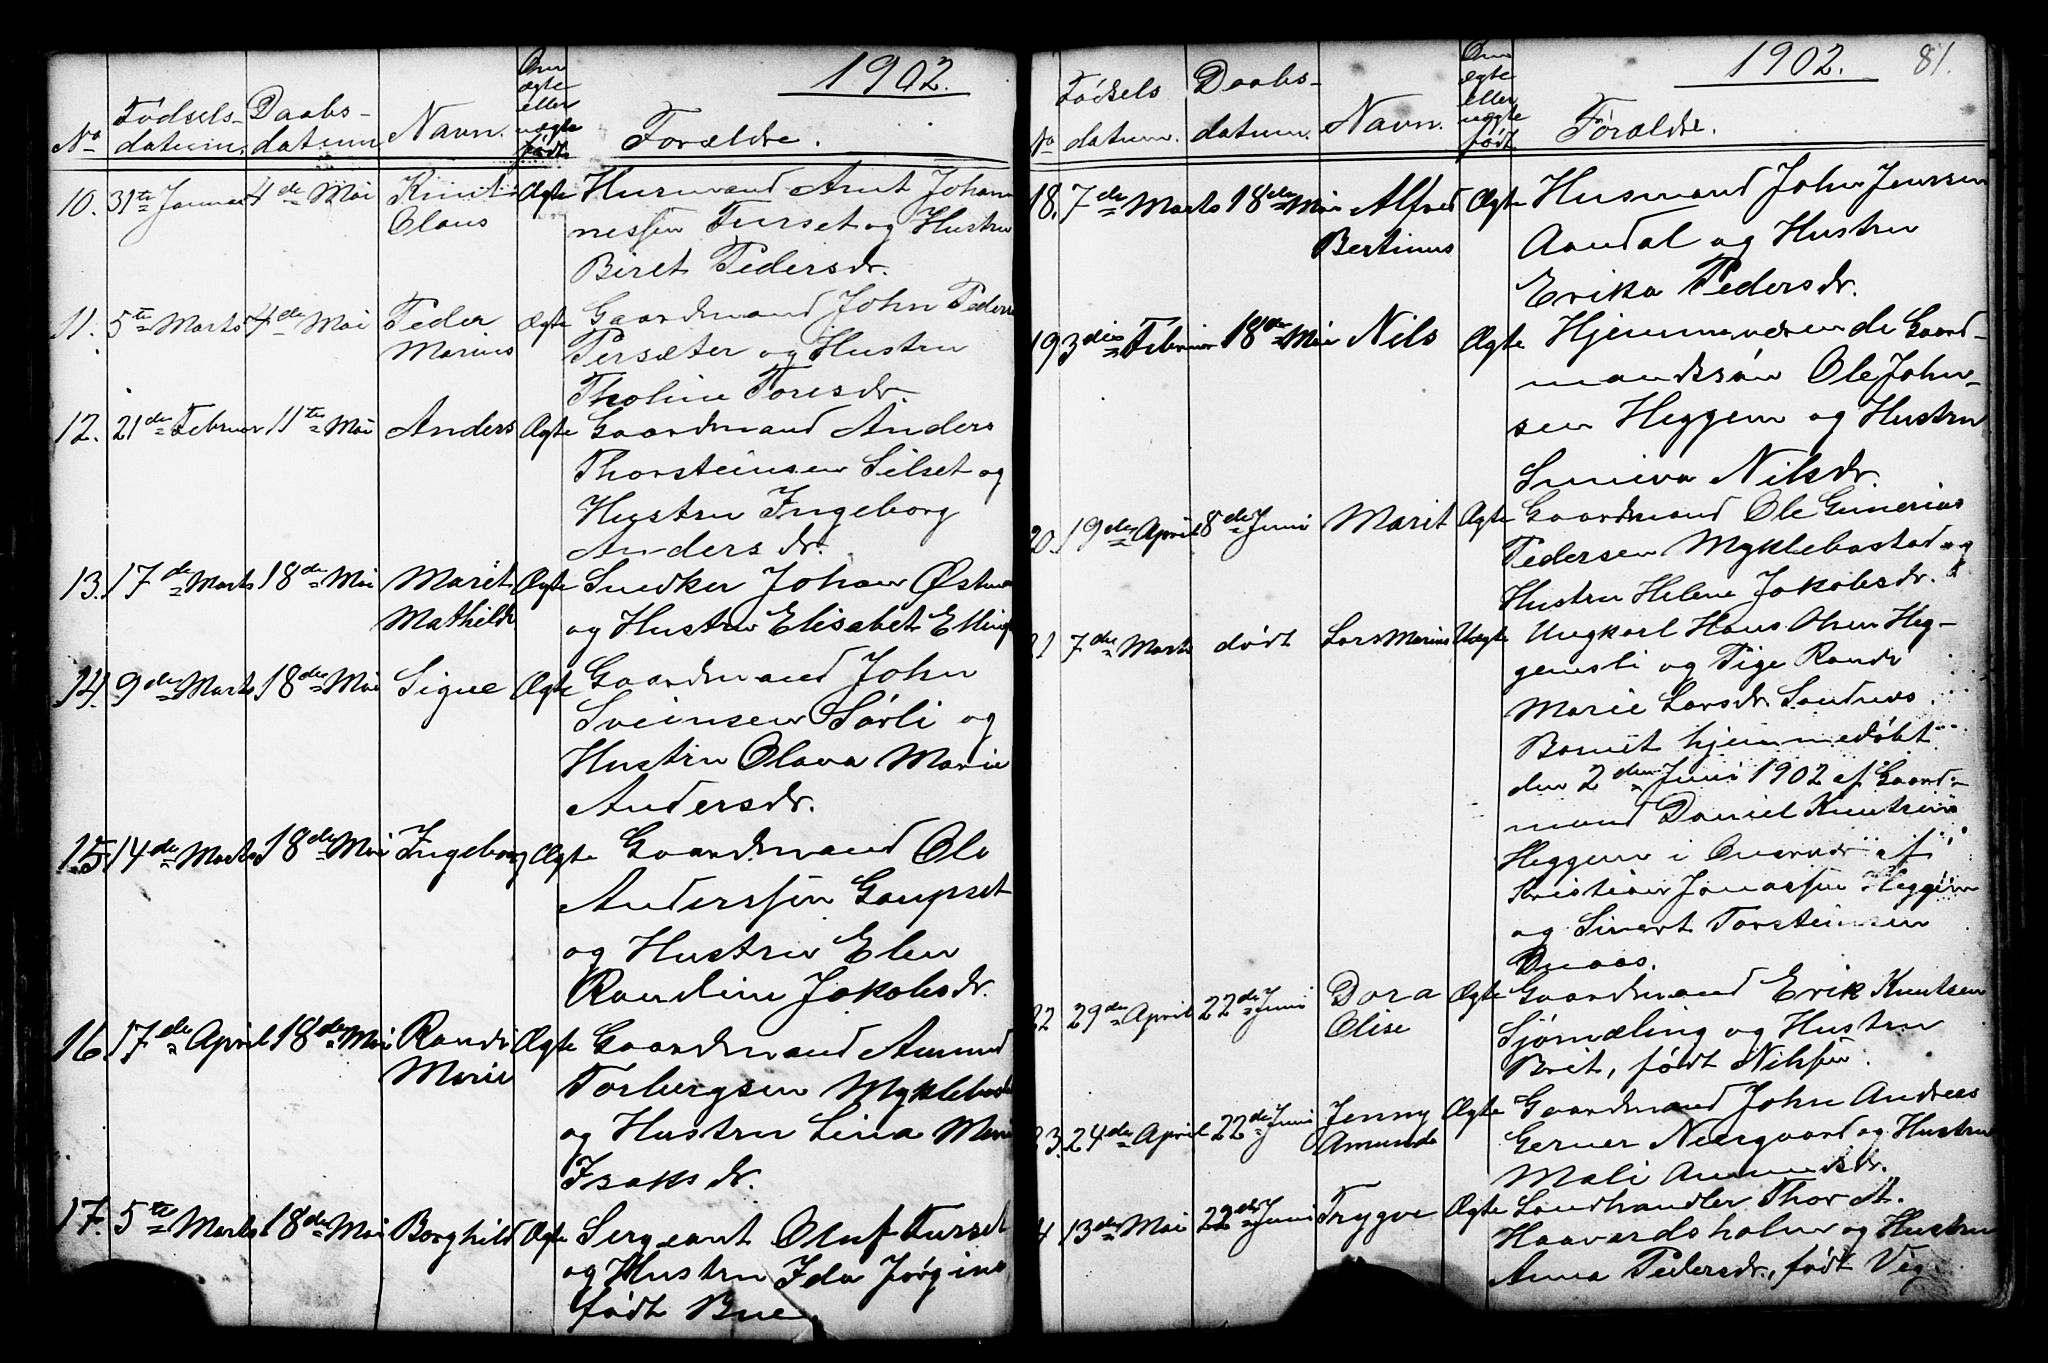 1902.
No Fødsels- datum. Daabs- datum Navn. Om ægte eller uægte født. Forældre.
10. 31te Januar 4de Mai Knut Ægte Husmand Arnt Johan
Olaus nessen Furset og Hustru
Beret Pedersdr.
11. 5te Marts 4de Mai Peder Ægte Gaardmand John Peders
Marius Persæter og Hustru
Tholine Toresdr.
12. 21de Februar 11te Mai Anders Ægte Gaardmand Anders
Thorsteinsen Silset og
Hustru Ingeborg
Andersdr.
13. 17de Marts 18de Mai Marit Ægte Snedker Johan
Mathilde og Hustru Elisabet
14. 9de Marts 18de Mai Signe Ægte Gaardmand John
Sveinsen Sørli og
Hustru Olava Marie
Andersdr.
15. 14de Marts 18de Mai Ingeborg Ægte Gaardmand Ole
Anderssen Gaupset
og Hustru Elen
Randine Jakobsdr.
16. 17de April 18de Mai Randi Ægte Gaardmand Amund
Marie Torbergsen Myklebost
og Hustru Lina Marie
Isaksdr.
17. 5te Marts 18de Mai Borghild Ægte Sergeant Oluf Furset
og Hustru Ida Jørgine
født Bue.
1902. 81.
No Fødsels datum. Daabs- datum. Navn. Om ægte eller uægte født Forældre.
18. 7de Marts 18de Mai Alfred Ægte Husmand John Jenssen
Bertinus Aandal og Hustru
Erika Pedersdr.
19 3die Februar 18de Mai Nils Ægte Hjemmeværende Gaard-
mandssøn Ole John-
sen Heggem og Hustru
Suneva Nilsdr.
20. 19de April 8de Juni Marit Ægte Gaardmand Ole Gunerius
Pedersen Myklebostad og
Hustru Helene Jakobsdr.
21 7de Marts dødt Lars Marius Uægte Ungkarl Hans Olsen Heg-
gemsli og Pige Randi
Marie Larsdr Sandnes.
Barnet hjemmedøbt
den 2den Juni 1902 af Gaard-
mand Daniel Knutsen
Heggem i Overvær af
Kristian Jonassen Heggem
og Sivert Torsteinsen

22 29de April 22de Juni Dora Ægte Gaardmand Erik Knutsen
Olise Sjømæling og Hustru
Brit, født Nilsen.
23. 24de April 22de Juni Jenny Ægte Gaardmand John Andreas
Amunda Gerner Neergaard og Hustru
Mali Amundsdr.
4 13de Mai 22de Juni Trygve Ægte Landhandler Thor A.
Haavardsholm og Hustru
Anna Pedersdr., født Veg